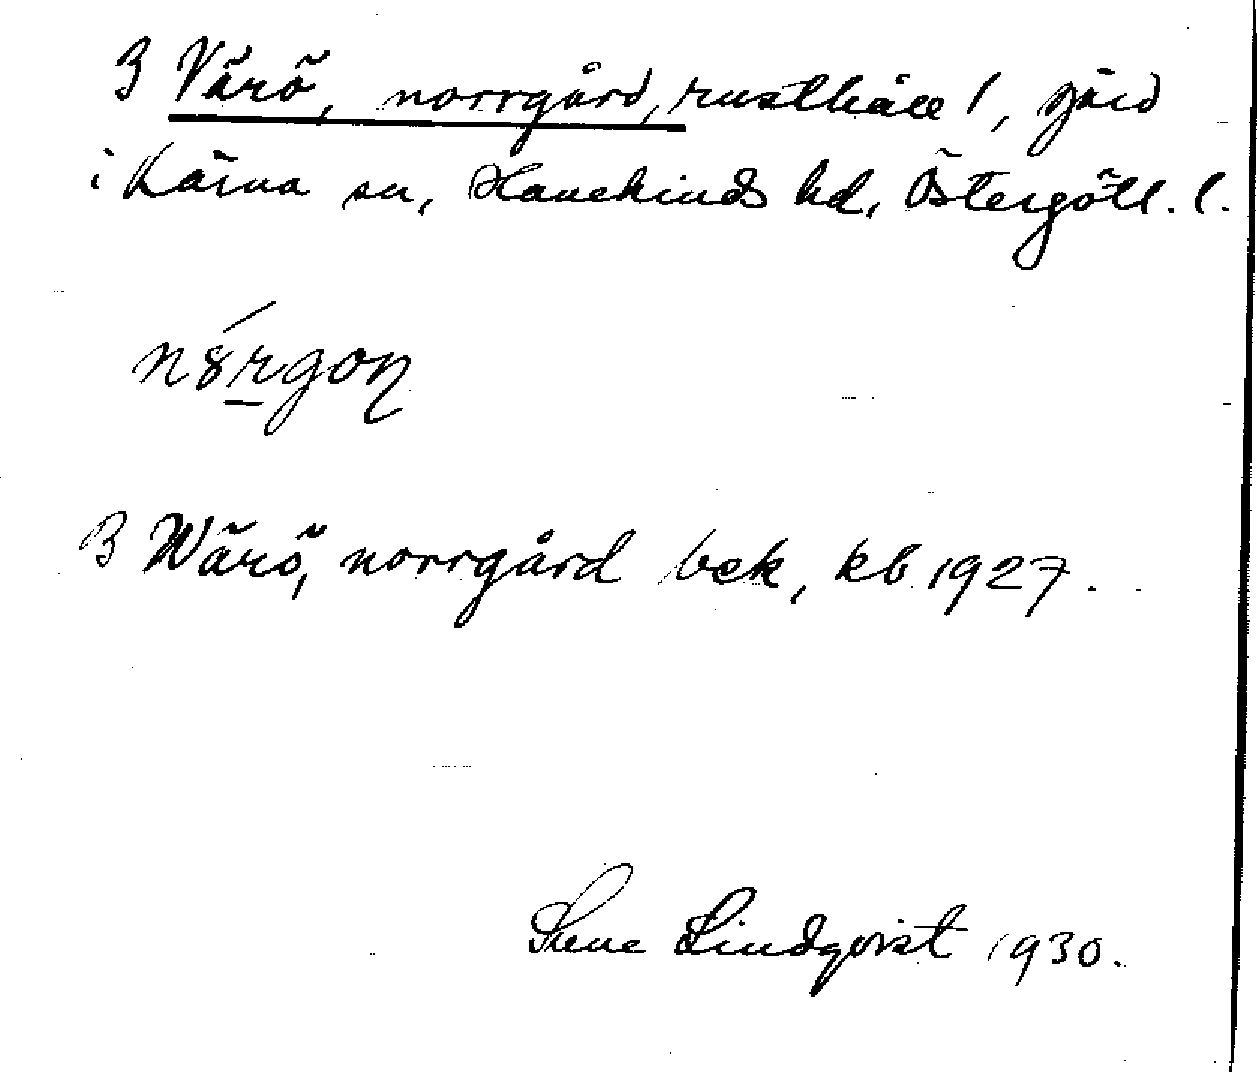 B Värö, norrgård, rusthåll 1, gård
i Kärna sn, Hanekinds hd, Östergötl. l.
nórgon
B Wärö, norrgård bek, kb 1927.
Sune Lindqvist 1930.